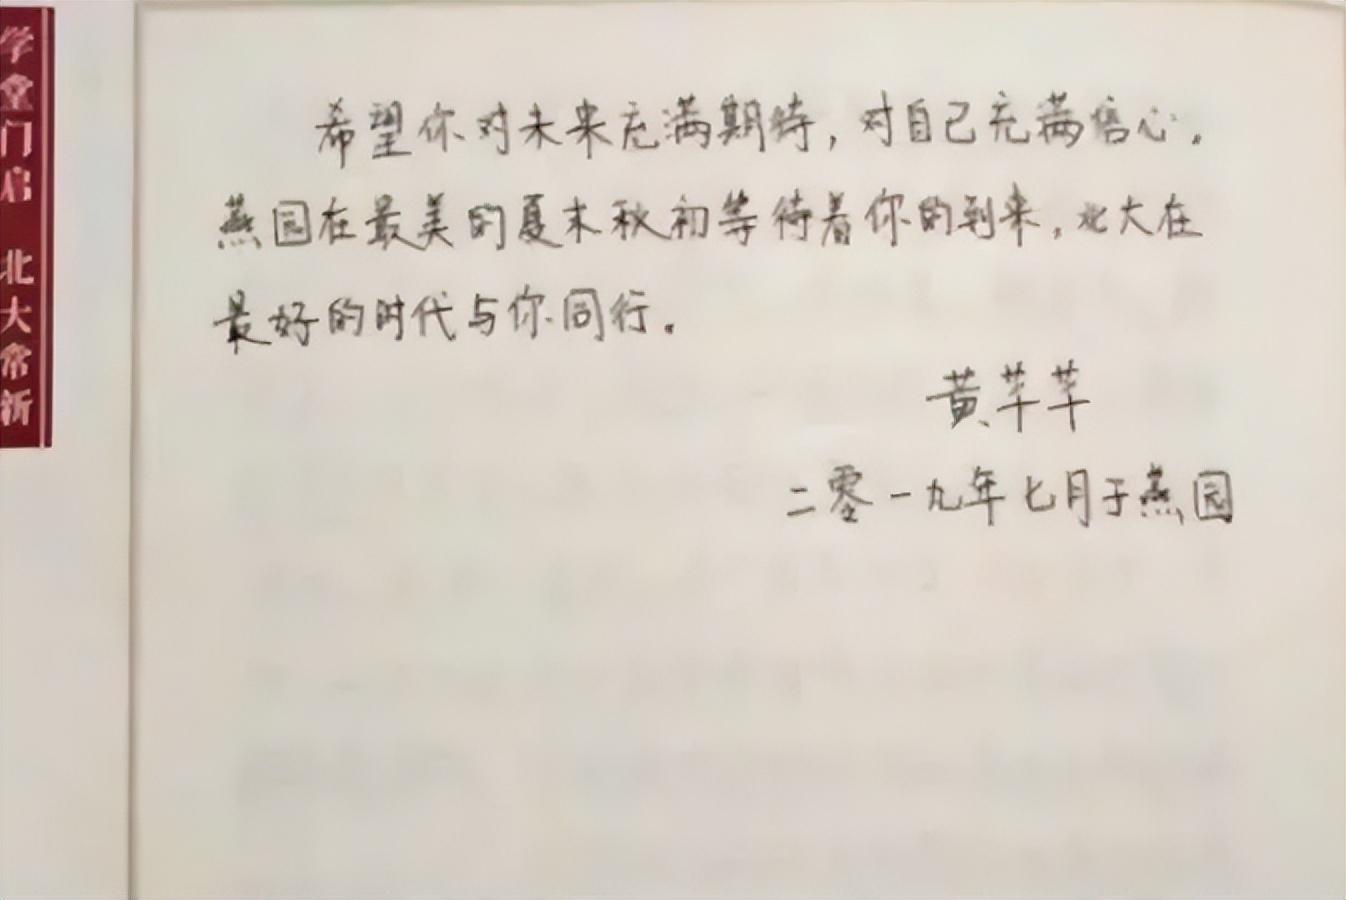 学堂门启 北大常新
希望你对未来充满期待，对自己充满信心。
燕园在最美的夏末秋初等待着你的到来，北大在
最好的时代与你同行。
黄芊芊
二零一九年七月于燕园